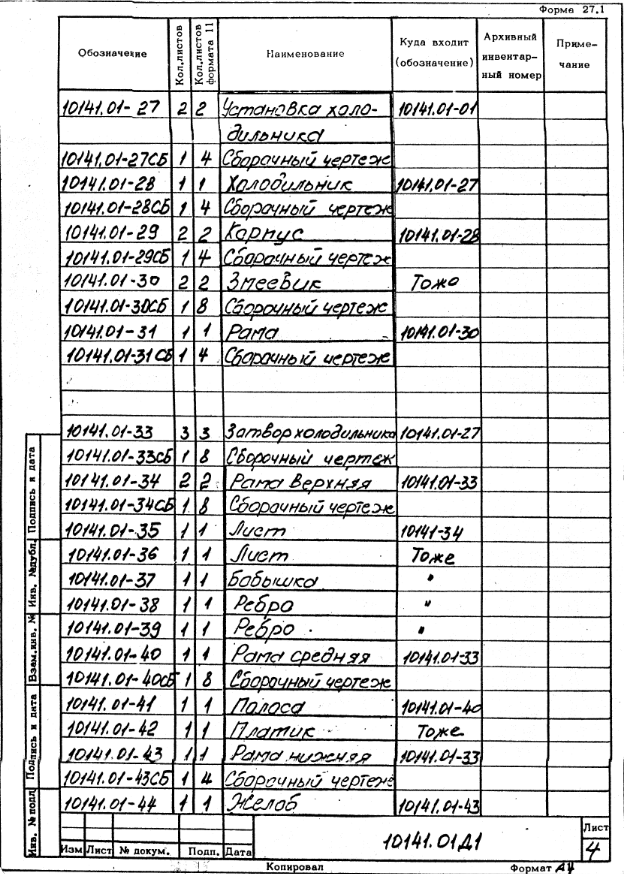 Форма 27.1
Обозначение Кол.листов Кол.листов формата 11 Наименование Куда входит (обозначение) Архивный инвентар-ный номер Приме-чание
10141.01-27 2 2 Установка холо- 10141.01-01
дильника
10141.01-27СБ 1 4 Сборочный чертеж
10141.01-28 1 1 Холодильник 10141.01-27
10141.01-28СБ 1 4 Сборочный чертеж
10141.01-29 2 2 Корпус 10141.01-28
10141.01-29СБ 1 4 Сборочный чертеж
10141.01-30 2 2 Змеевик Тоже
10141.01-30СБ 1 8 Сборочный чертеж
10141.01-31 1 1 Рама 10141.01-30
10141.01-31СБ 1 4 Сборочный чертеж
10141.01-33 3 3 Затвор холодильника 10141.01-27
10141.01-33СБ 1 8 Сборочный чертеж
10141.01-34 2 2 Рама верхняя 10141.01-33
10141.01-34СБ 1 8 Сборочный чертеж
10141.01-35 1 1 Лист 10141-34
10141.01-36 1 1 Лист Тоже
10141.01-37 1 1 Бобышка "
10141.01-38 1 1 Ребро "
10141.01-39 1 1 Ребро "
10141.01-40 1 1 Рама средняя 10141.01-33
10141.01-40СБ 1 8 Сборочный чертеж
10141.01-41 1 1 Полоса 10141.01-40
10141.01-42 1 1 Платик Тоже
10141.01-43 1 1 Рама нижняя 10141.01-33
10141.01-43СБ 1 4 Сборочный чертеж
10141.01-44 1 1 Желоб 10141.01-43
Инв. № подл. Подпись и дата Взам.инв. № Инв. №дубл. Подпись и дата
10141.01Д1
Лист
4
Изм Лист № докум. Подп. Дата
Копировал Формат А4